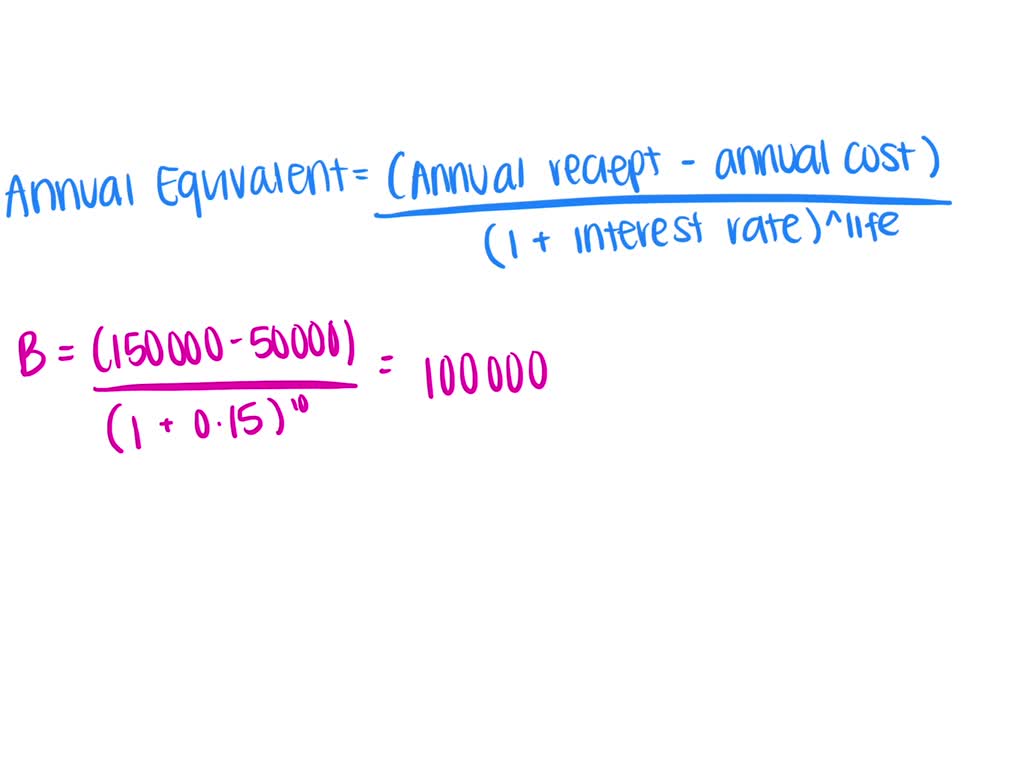 Annual Equivalent = (Annual reciept - annual cost)
(1 + interest rate)^life
B = (150000 - 50000) = 100000
(1 + 0.15)^10